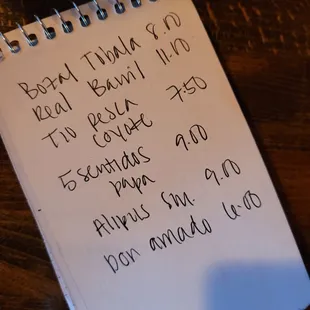 Bozal Tobala 8.00
Real Barril 11.00
Tio Pesca
Coyote 7.50
5 sentidos
papa 9.00
Alipus Sn. 9.00
Don amado 6.00